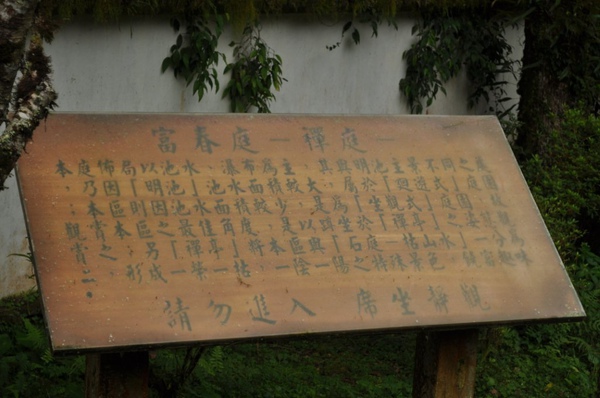 富春庭—禪庭—
本庭佈局以池水、瀑布為主，其與明池主景不同之處
，乃因「明池」池水面積較大，屬於「迴遊式」庭園
；本區則因池水面積較少，是為「坐觀式」庭園，故
觀賞本區之最佳角度，是以坐於「禪亭」之
觀賞之；另「禪亭」將本區與「石庭—枯山水」一分為
二，形成一榮一枯，一陰一陽之特殊景色，饒富趣味
請勿進入 席坐靜觀